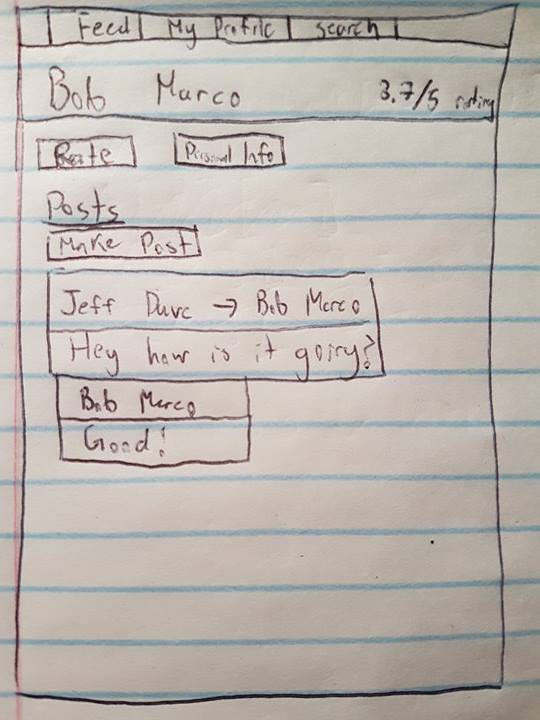 Feed My Profile Search
Bob Marco 3.7/5 rating
Rate Personal Info
Posts
Make Post
Jeff Dave → Bob Marco
Hey how is it going?
Bob Marco
Good!